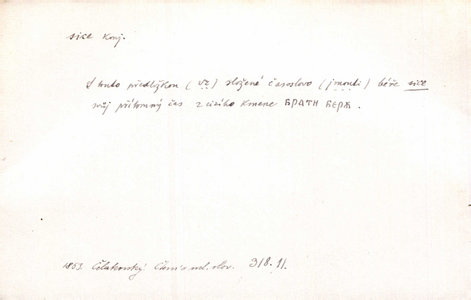 sice konj.
S touto předlýkou (vz) složené časoslovo (jmouti) béře sice
svůj přítomný čas z cizího kmene БРАТИ БЕРѪ.
1853 Čelakovský Čten. o srl. slov. 318. 11.